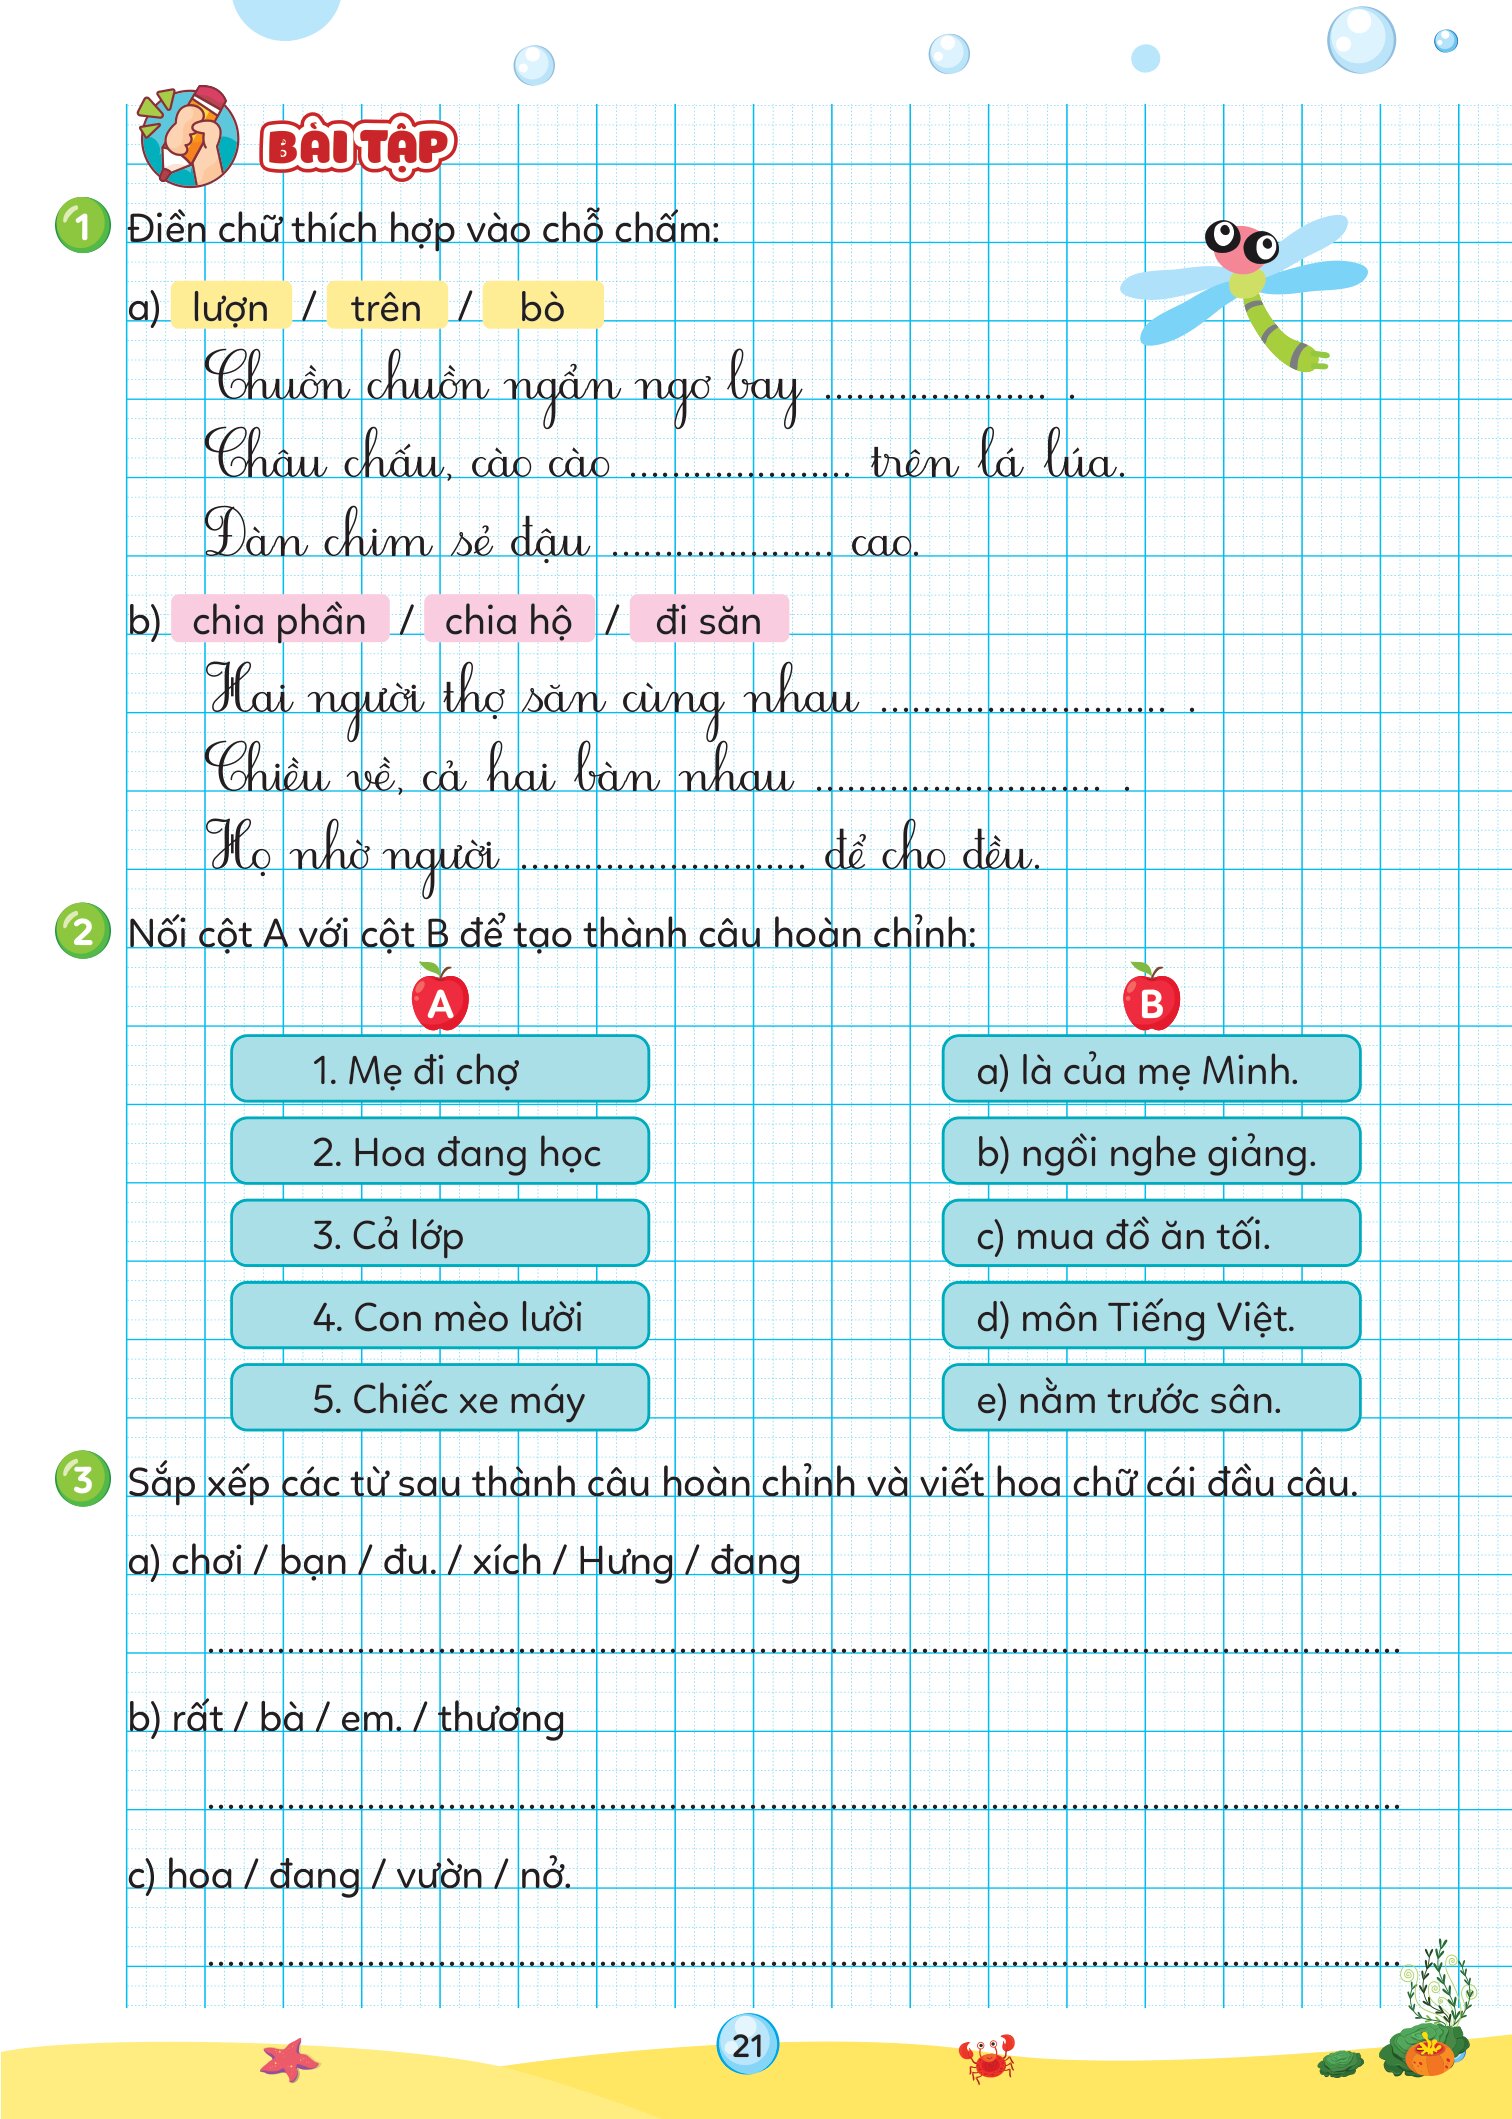 BÀI TẬP
1 Điền chữ thích hợp vào chỗ chấm:
a) lượn / trên / bò
Chuồn chuồn ngẩn ngơ bay ..................... .
Châu chấu, cào cào ..................... trên lá lúa.
Đàn chim sẻ đậu ..................... cao.
b) chia phần / chia hộ / đi săn
Hai người thợ săn cùng nhau ........................... .
Chiều về, cả hai bàn nhau ........................... .
Họ nhờ người ........................... để cho đều.
2 Nối cột A với cột B để tạo thành câu hoàn chỉnh:
A B
1. Mẹ đi chợ a) là của mẹ Minh.
2. Hoa đang học b) ngồi nghe giảng.
3. Cả lớp c) mua đồ ăn tối.
4. Con mèo lười d) môn Tiếng Việt.
5. Chiếc xe máy e) nằm trước sân.
3 Sắp xếp các từ sau thành câu hoàn chỉnh và viết hoa chữ cái đầu câu.
a) chơi / bạn / đu. / xích / Hưng / đang
b) rất / bà / em. / thương
c) hoa / đang / vườn / nở.
21